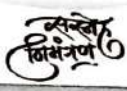 सस्नेह
निमंत्रण